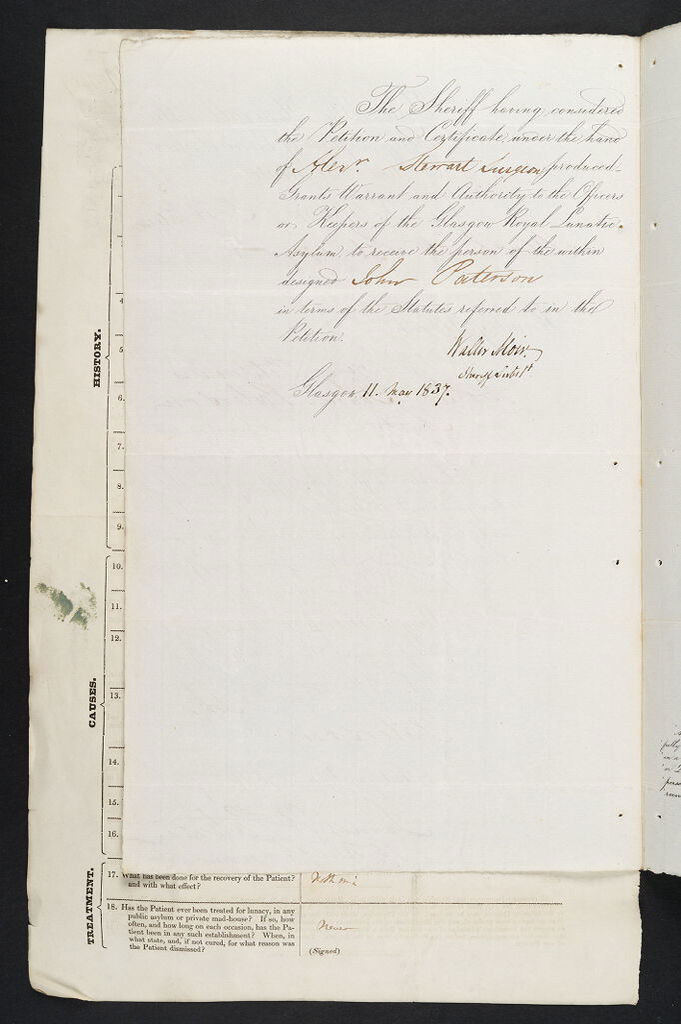 The Sheriff having considered
the Petition and Certificate under the hand
of Alexr. Stewart Surgeon produced
Grants Warrant and Authority to the Officers
or Keepers of the Glasgow Royal Lunatic
Asylum to receive the person of the within
designed John Paterson
in terms of the Statutes referred to in the
Petition.
Walter Moir
Sheriff Subst
Glasgow 11 May 1837.
HISTORY.
4
5
6.
7.
8.
9.
10.
11.
12.
CAUSES.
13.
14.
15.
16.
TREATMENT.
17. What has been done for the recovery of the Patient?
and with what effect?
Nothing
18. Has the Patient ever been treated for lunacy, in any
public asylum or private mad-house? If so, how
often, and how long on each occasion, has the Pa-
tient been in any such establishment? When, in
what state, and, if not cured, for what reason was
the Patient dismissed?
Never
(Signed)